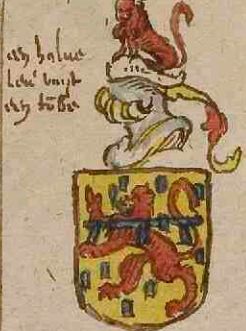 en halue
leu' vuyt
en tobe